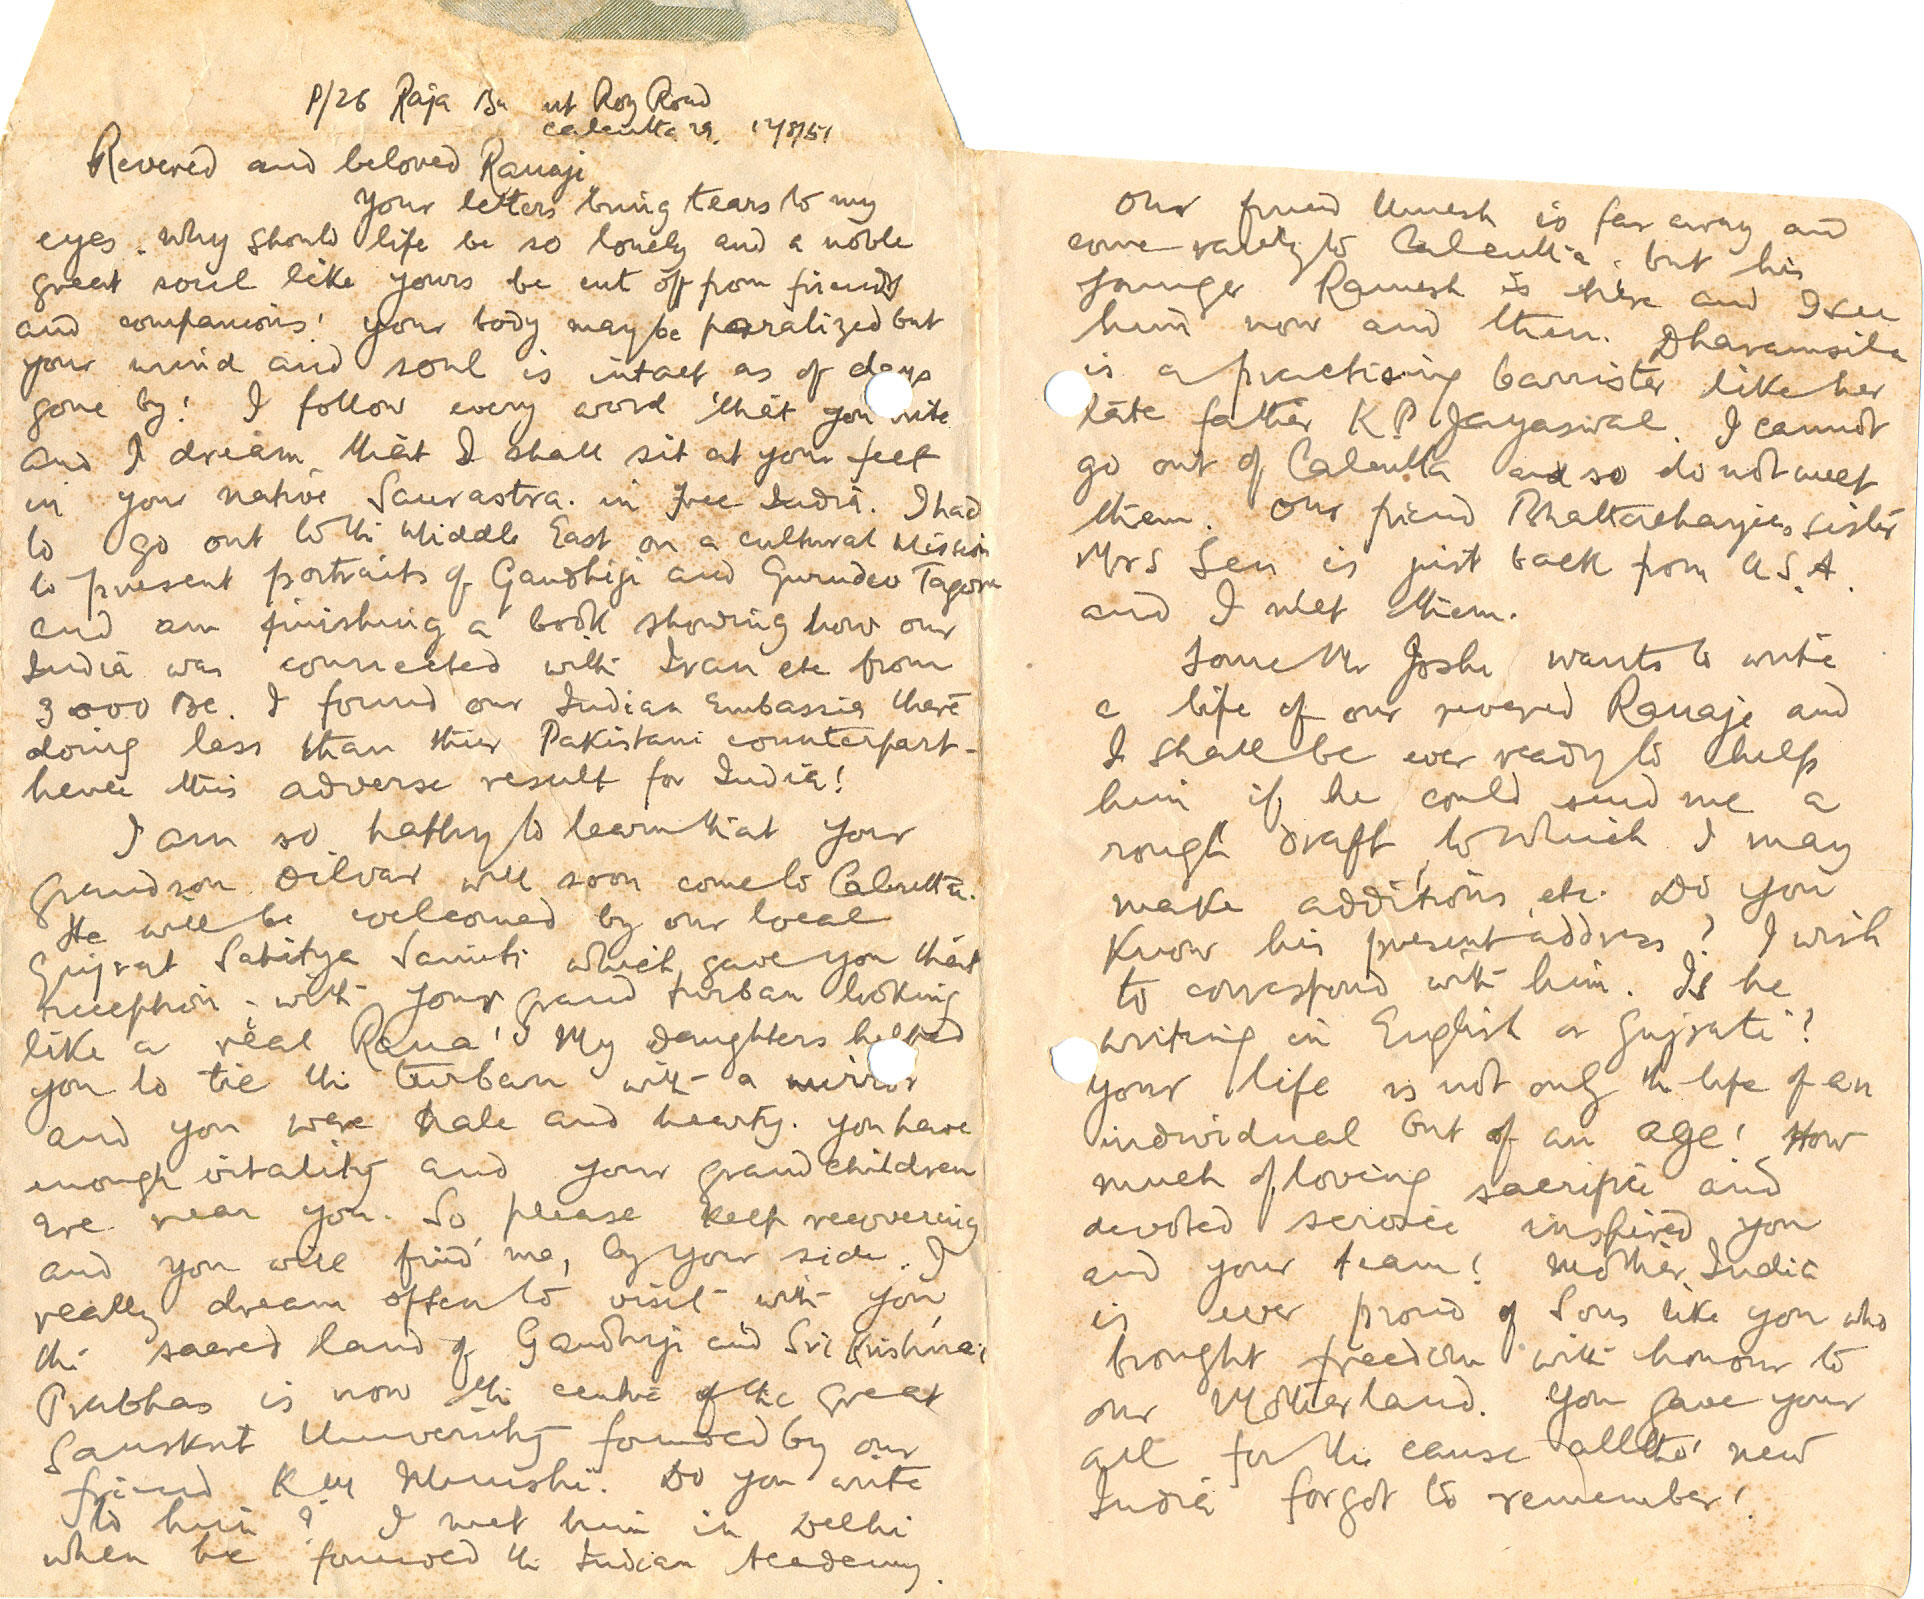 P/26 Raja Ba nt Roy Road
Calcutta 29. 17/8/51
Revered and beloved Ranaji
Your letters bring tears to my
eyes. Why should life be so lonely and a noble
great soul like yours be cut off from friends
and companions! Your body may be paralized but
your mind and soul is intact as of days
gone by! I follow every word that you write
and I dream that I shall sit at your feet
in your native Saurastra. in Free India. I had
to go out to the Middle East on a cultural Mission
to present portraits of Gandhiji and Gurudev Tagore
and am finishing a book showing how our
India was connected with Iran etc from
3000 BC. I found our Indian Embassies there
doing less than thier Pakistani counterpart -
hence this adverse result for India!
I am so happy to learn that your
grandson Dilvar will soon come to Calcutta.
He will be welcomed by our local
Gujrat Sahitya Samiti which gave you that
reception - with your grand turban looking
like a real Rana! My daughters helped
you to tie the turban with a mirror
and you were hale and hearty. You have
enough vitality and your grandchildren
are near you. So please keep recovering
and you will find me, by your side. I
really dream often to visit with you
the sacred land of Gandhiji and Sri Krishna:
Prabhas is now the centre of the great
Sanskrit University founded by our
friend K M Munshi. Do you write
to him? I met him in Delhi
when he founded the Indian Academy.
Our friend Umesh is far away and
come rarely to Calcutta. but his
younger Ramesh is here and I see
him now and then. Dharamsila
is a practising barrister like her
late father K.P. Jayaswal. I cannot
go out of Calcutta and so do not meet
them. Our friend Bhattacharjees sister
Mrs Sen is just back from U.S.A.
and I met them.
Some Mr Joshi wants to write
a life of our revered Ranaji and
I shall be ever ready to help
him if he could send me a
rough draft, to which I may
make additions, etc. Do you
know his present address? I wish
to correspond with him. Is he
writing in English or Gujrati?
Your life is not only the life of an
individual but of an age! How
much of loving sacrifice and
devoted service inspired you
and your team! Mother India
is ever proud of Sons like you who
brought freedom with honour to
our Motherland. You gave your
all for the cause alltho' new
India forgot to remember!